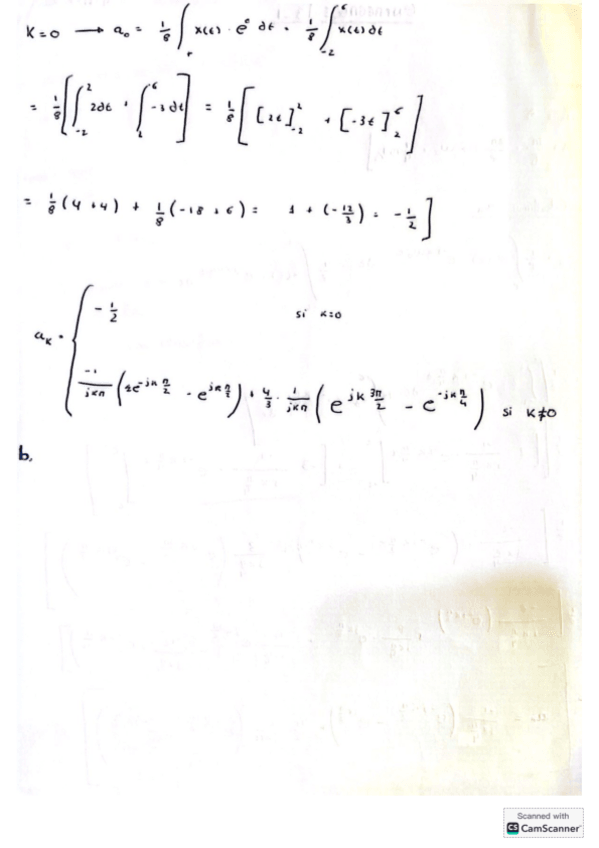 K=0 → a₀ = 1/8 ∫ x(t) · e⁰ dt = 1/8 ∫₋₂⁶ x(t) dt
= 1/8 [∫₋₂² 2dt + ∫₂⁶ -3 dt] = 1/8 [[2t]₋₂² + [-3t]₂⁶]
= 1/8 (4+4) + 1/8 (-18+6) = 1 + (-12/8) = -1/2 ]
- 1/2 si K=0
aₖ =
-1/jKπ (2e^(-jKπ/2) - e^(jKπ/2)) + 4/3 · 1/jKπ (e^(jK3π/2) - e^(-jKπ/4)) si K≠0
b.
Scanned with
CS CamScanner